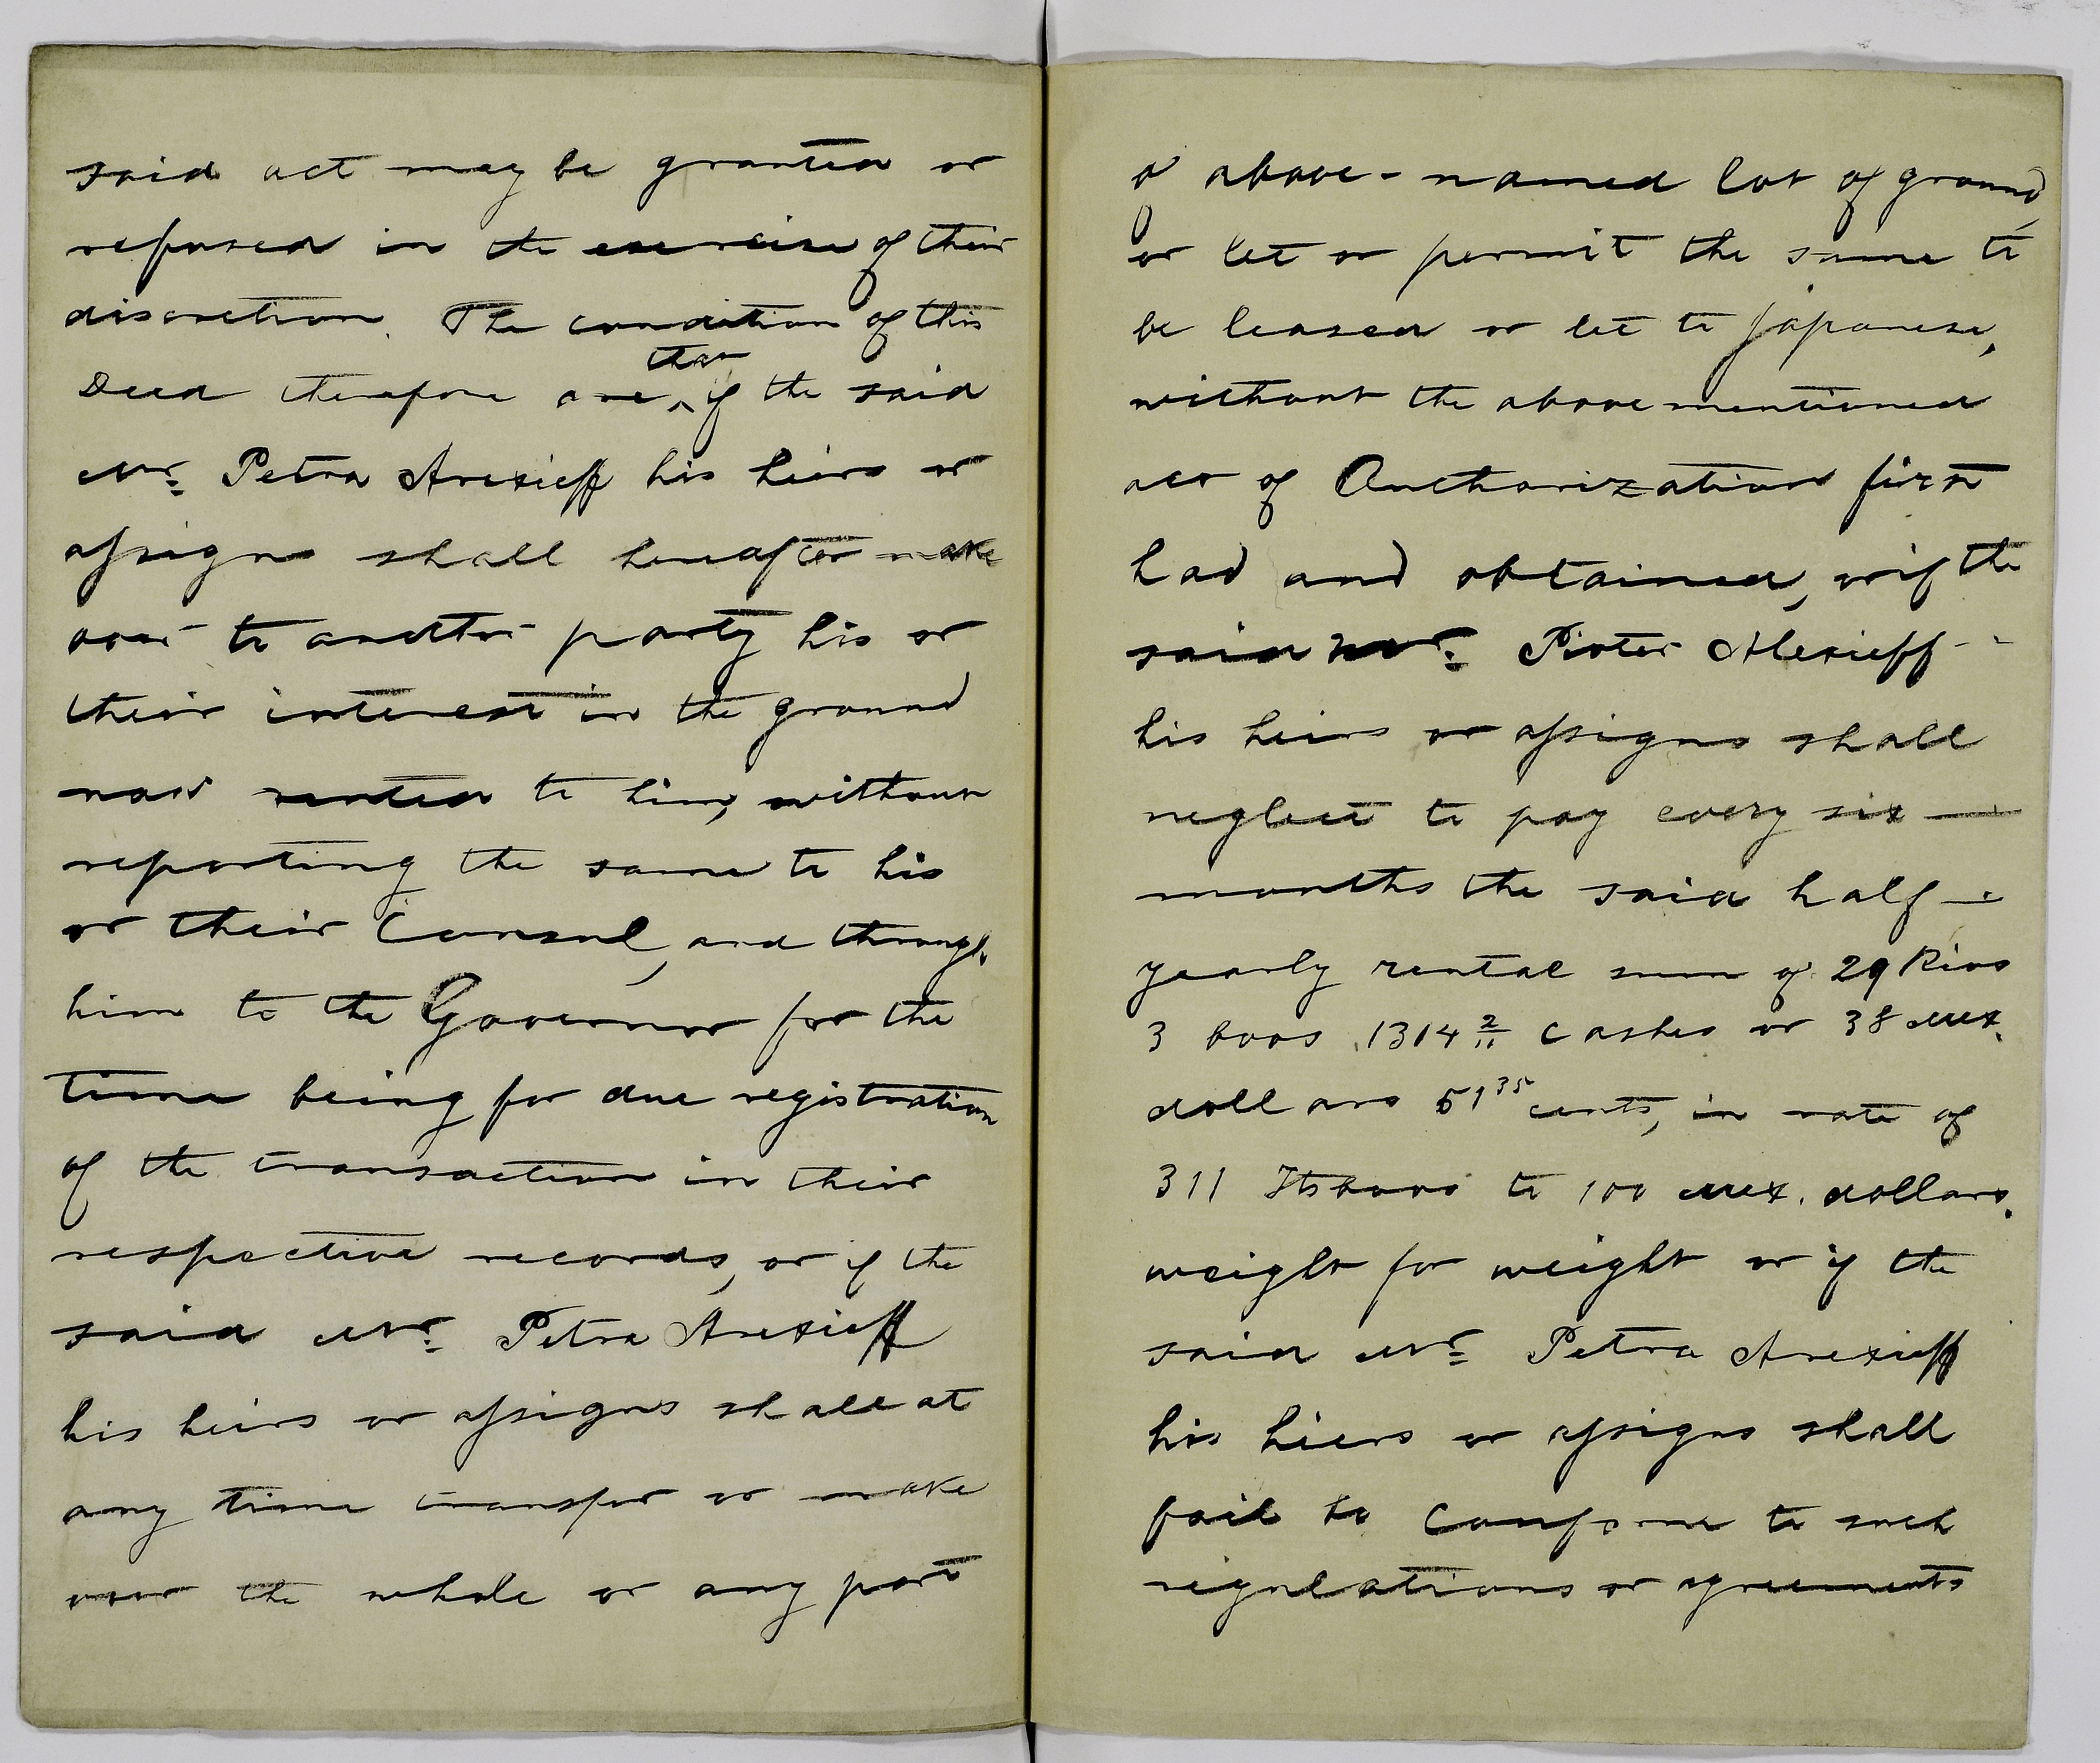 said act may be granted or
refused in the exercise of their
discretion. The condition of this
that
Deed therefore are, if the said
Mr. Petra Arexieff his hiers or
assigns shall hereafter make
over to another party his or
their interest in the ground
now rented to him, without
reporting the same to his
or their Consul, and through
him to the Governor for the
time being for due registration
of the transaction in their
respective records, or if the
said Mr. Petra Arexieff
his heirs or assigns shall at
any time transfer or make
over the whole or any part
of above-named lot of ground,
or let or permit the same to
be leased or let to Japanese,
without the above mentioned
act of Authorization first
had and obtained, or if the
said Mr. Pioter Alexieff
his heirs or assigns shall
neglect to pay every six —
months the said half —
yearly rental sum of 29 Rios
3 boos 1314 2/11 cashes or 38 Mex.
dollars 51 35 cents, in rate of
311 Itsboos to 100 Mex. dollars.
weight for weight or if the
said Mr. Petra Arexieff
his hiers or assigns shall
fail to conform to such
regulations or agreements